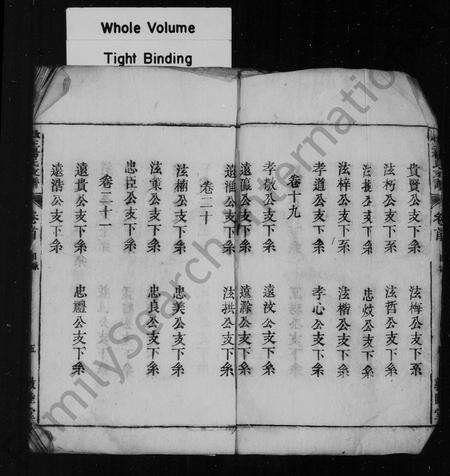 Whole Volume
Tight Binding
貴賢公支下系 法梅公支下系
法朽公支下系 法哲公支下系
公支下系 忠公支下系
法祥公支下系 法楷公支下系
孝道公支下系 孝心公支下系
卷十九
孝敬公支下系 遠汶公支下系
遠公支下系 遠公支下系
遠公支下系 法拱公支下系
卷二十
法楠公支下系 忠美公支下系
法業公支下系 忠良公支下系
忠臣公支下系
卷二十一
遠貴公支下系 忠禮公支下系
遠浩公支下系
卷首
FamilySearch International